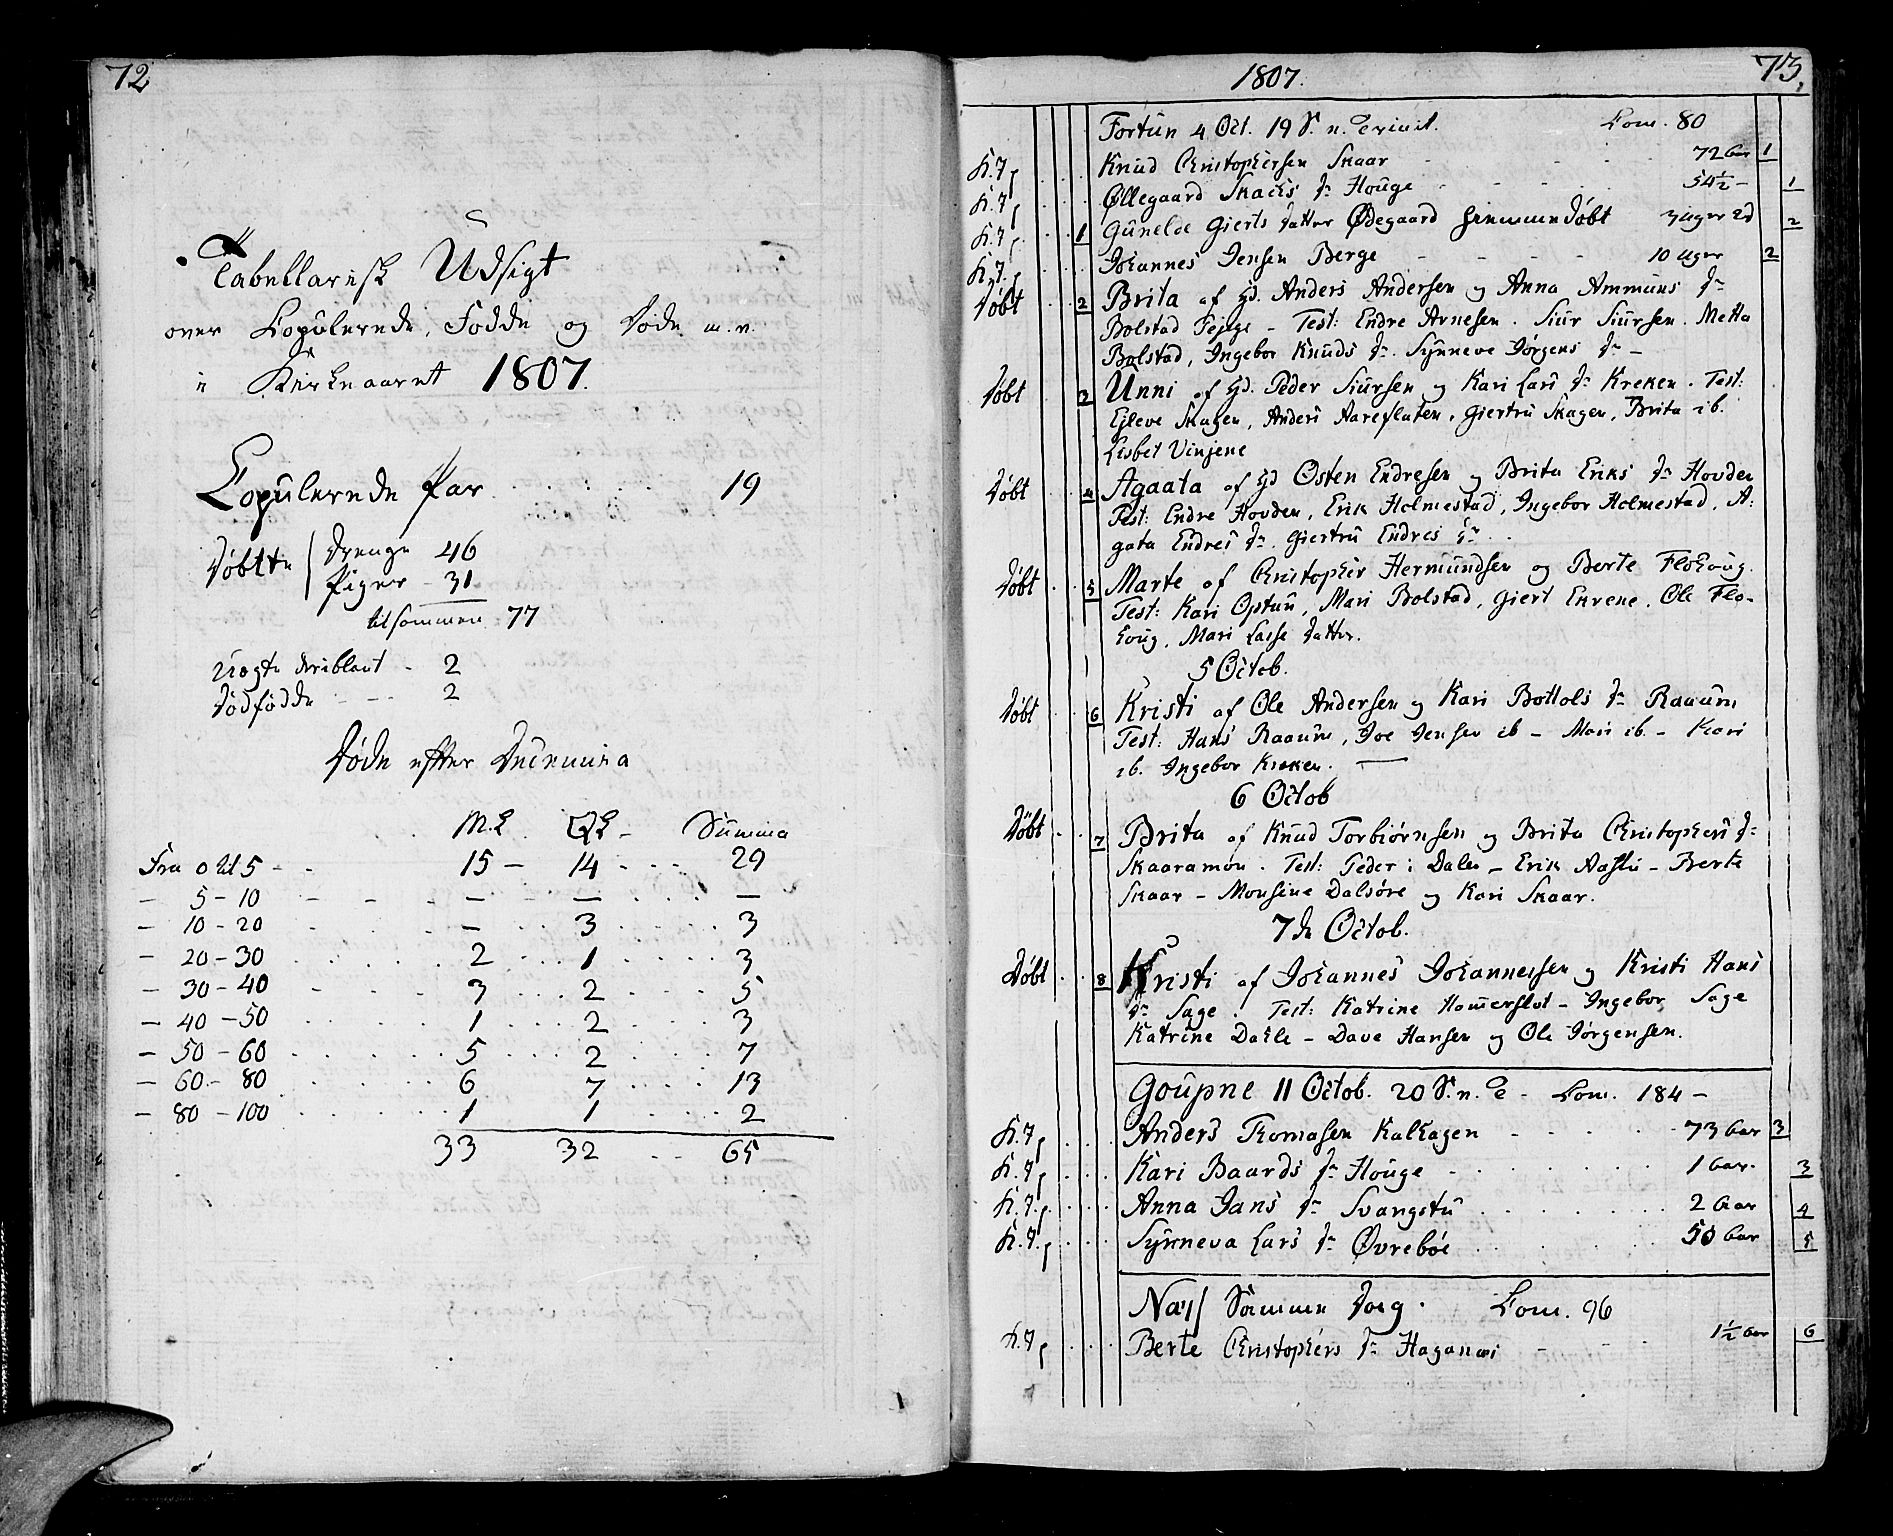 72
Tabellarisk Udsigt
over Copulerede, Fødde og Døde m.v.
i Kirkeaaret 1807.
Copulerede Par . . . . . . 19
Døbte Drenge 46
Piger - 31
tilsammen 77
Uægte deriblant - 2
Dødfødde - - - 2
Døde efter Decennia
M.K. QK - Summa
Fra 0 til 5 - - 15 - 14 - - - 29
- 5 - 10 - - - - - -
- 10 - 20 - 3 3
- 20 - 30 2 1 3
- 30 - 40 3 2 5
- 40 - 50 1 2 3
- 50 - 60 5 2 7
- 60 - 80 6 7 13
- 80 - 100 1 1 2
33 32 - - 65
1807. 73.
Fortun 4 Oct. 19 S. n. Trinit. Com. 80
Knud Christophersen Skaar - - - 72 Aar 1
Øllegaard Skacks Dr Houge - - - 54½ - 1
1 Gunelde Gierts Datter Ødegaard hiemmedøbt 3 uger 2
Johannes Jensen Berge - - - 10 uger 2
Døbt 2 Brita af Gd. Anders Andersen og Anna Ammuns Dr
Bolstad Fejge - Test: Endre Arnesen. Siur Siursen. Metta
Bolstad, Ingebor Knuds Dr. Synneve Jørgens Dr -
Døbt 3 Unni af Gd. Peder Siursen og Kari Lars Dr Kreken. Test:
Ejleve Skagen, Anders Aareflaten, Giertru Skagen, Brita ib.
Lisbet Vinjene
Døbt 4 Agaata af Gd Osten Endresen og Brita Eriks Dr Hovden
Test: Endre Hovden, Erik Holmestad, Ingebor Holmestad, A:
gata Endres Dr. Giertru Endres Dr. .
Døbt 5 Marte af Christopher Hermundsen og Berte Flohoug.
Test: Kari Optun, Mari Bolstad, Giert Enrene. Ole Flo-
houg, Mari Lasse Datter.
5 Octob.
Døbt 6 Kristi af Ole Andersen og Kari Bottols Dr Raaum
Test: Hans Raaum, Joe Jensen ib - Mari ib. - Kari
ib. Ingebor Kreken. -
6 Octob
Døbt 7 Brita af Knud Torbiørnsen og Brita Christophers Dr
Skaaramoe. Test: Peder i Dalen - Erik - Berte
Skaar - Monsine Dalsøre og Kari Skaar.
7de Octob.
Døbt 8 Kristi af Johannes Johannessen og Kristi Hans
Dr Sage. Test: Katrine Hamerslot - Ingebor Sage
Katrine Dahle - Dave Hansen og Ole Jørgensen.
Goupne 11 Octob. 20 S. n. T - Com. 184 -
Anders Thomasen Kalhagen - - - 73 Aar 3
Kari Baards Dr Houge - - - 1 Aar. 3
Anna Jans Dr Svangstu . . . 2 Aar 4
Synneva Lars Dr Øvrebøe . . . 50 Aar 5
Næs Samme Dag. Com. 96
Berte Christophers Dr Haganæs - - - 1½ Aar 6